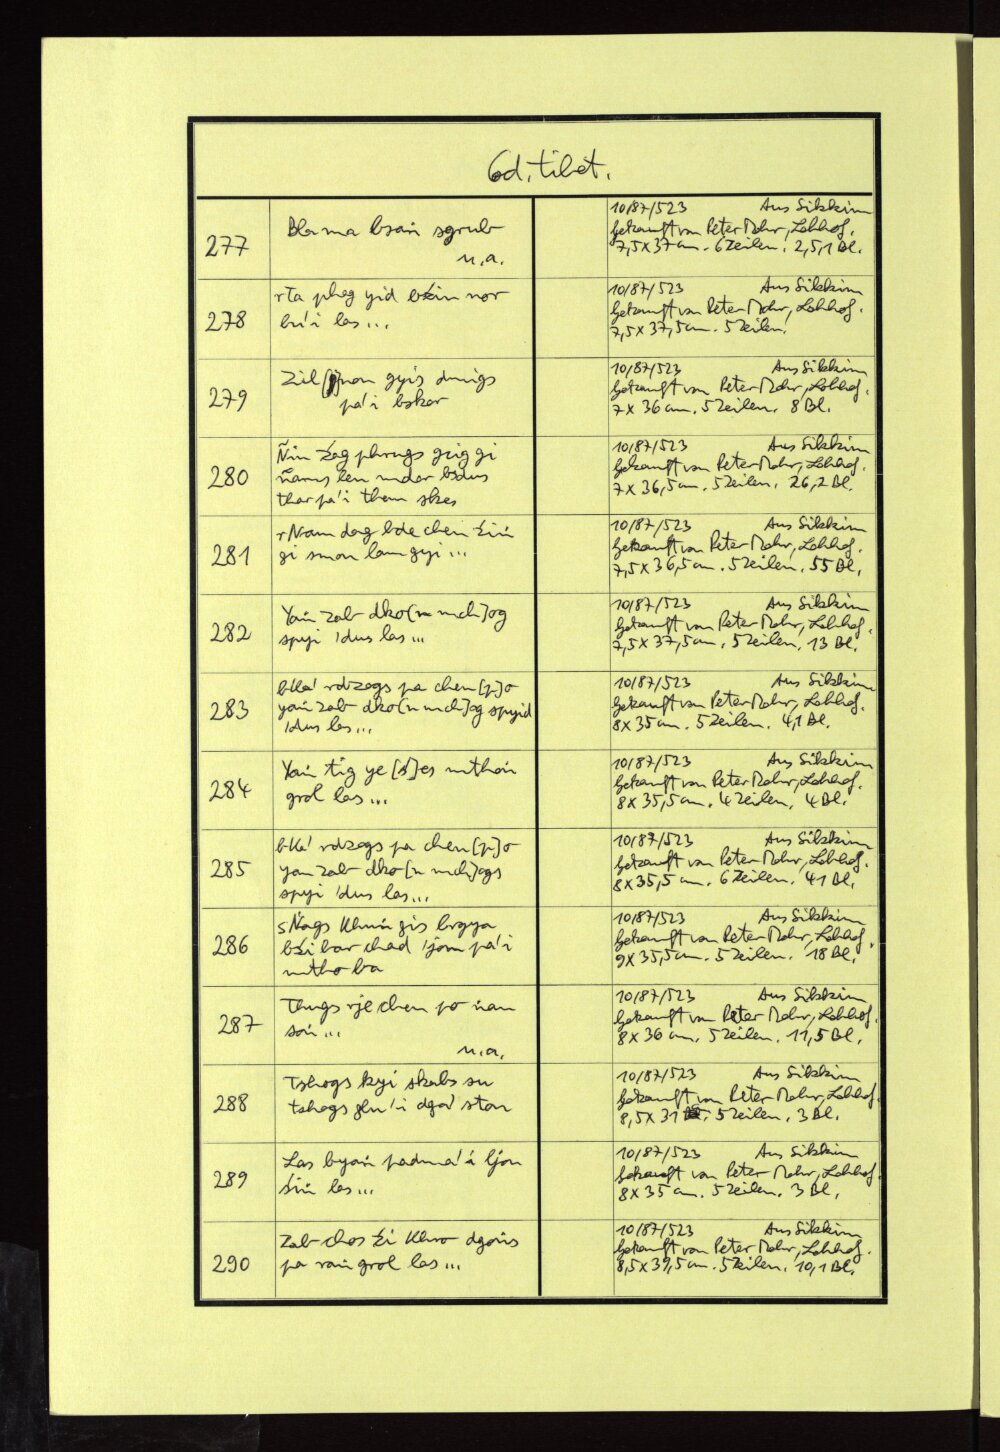 Cod. tibet.
277
Bla ma bsań sgrub
u.a.
10/87/523 Aus Sikkim
Gekauft von Peter Mohr, Lohhof.
7,5x37 cm. 6 Zeilen. 2,5,1 Bl.
278
rTa phag yid bźin nor
bu'i las...
10/87/523 Aus Sikkim
Gekauft von Peter Mohr, Lohhof.
7,5 x 37,5 cm. 5 Zeilen.
279
Zil gnon gyis dmigs
pa'i bskor
10/87/523 Aus Sikkim
Gekauft von Peter Mohr, Lohhof.
7 x 36 cm. 5 Zeilen. 8 Bl.
280
Ñin źag phrugs gcig gi
ñams len mdor bsdus
thar pa'i them skas
10/87/523 Aus Sikkim
Gekauft von Peter Mohr, Lohhof.
7 x 36,5 cm. 5 Zeilen. 26,2 Bl.
281
rNam dag bde chen źiń
gi smon lam gyi...
10/87/523 Aus Sikkim
Gekauft von Peter Mohr, Lohhof.
7,5 x 36,5 cm. 5 Zeilen. 55 Bl.
282
Yań zab dko[n mch]og
spyi 'dus las...
10/87/523 Aus Sikkim
Gekauft von Peter Mohr, Lohhof.
7,5 x 37,5 cm. 5 Zeilen. 13 Bl.
283
bKa' rdzogs pa chen [p]o
yań zab dko[n mch]og spyid
'dus las...
10/87/523 Aus Sikkim
Gekauft von Peter Mohr, Lohhof.
8x35 cm. 5 Zeilen. 4,1 Bl.
284
Yań tig ye [ś]es mthoń
grol las...
10/87/523 Aus Sikkim
Gekauft von Peter Mohr, Lohhof.
8 x 35,5 cm. 4 Zeilen. 4 Bl.
285
bKa' rdzogs pa chen [p]o
yan zab dko[n mch]ogs
spyi 'dus las...
10/87/523 Aus Sikkim
Gekauft von Peter Mohr, Lohhof.
8x35,5 cm. 6 Zeilen. 41 Bl.
286
sŃags khuń gis brgya
bźi bar chad 'jom pa'i
mtho ba
10/87/523 Aus Sikkim
Gekauft von Peter Mohr, Lohhof.
9x35,5 cm. 5 Zeilen. 18 Bl.
287
Thugs rje chen po ńan
soń...
u.a.
10/87/523 Aus Sikkim
Gekauft von Peter Mohr, Lohhof.
8 x 36 cm. 5 Zeilen. 11,5 Bl.
288
Tshogs kyi skabs su
tshogs glu'i dga' ston
10/87/523 Aus Sikkim
Gekauft von Peter Mohr, Lohhof.
8,5 x 31 5 Zeilen. 3 Bl.
289
Las byań padma'i ljon
śiń las...
10/87/523 Aus Sikkim
Gekauft von Peter Mohr, Lohhof.
8 x 35 cm. 5 Zeilen. 3 Bl.
290
Zab chos źi khro dgońs
pa rań grol las...
10/87/523 Aus Sikkim
Gekauft von Peter Mohr, Lohhof.
8,5x39,5 cm. 5 Zeilen. 10,1 Bl.